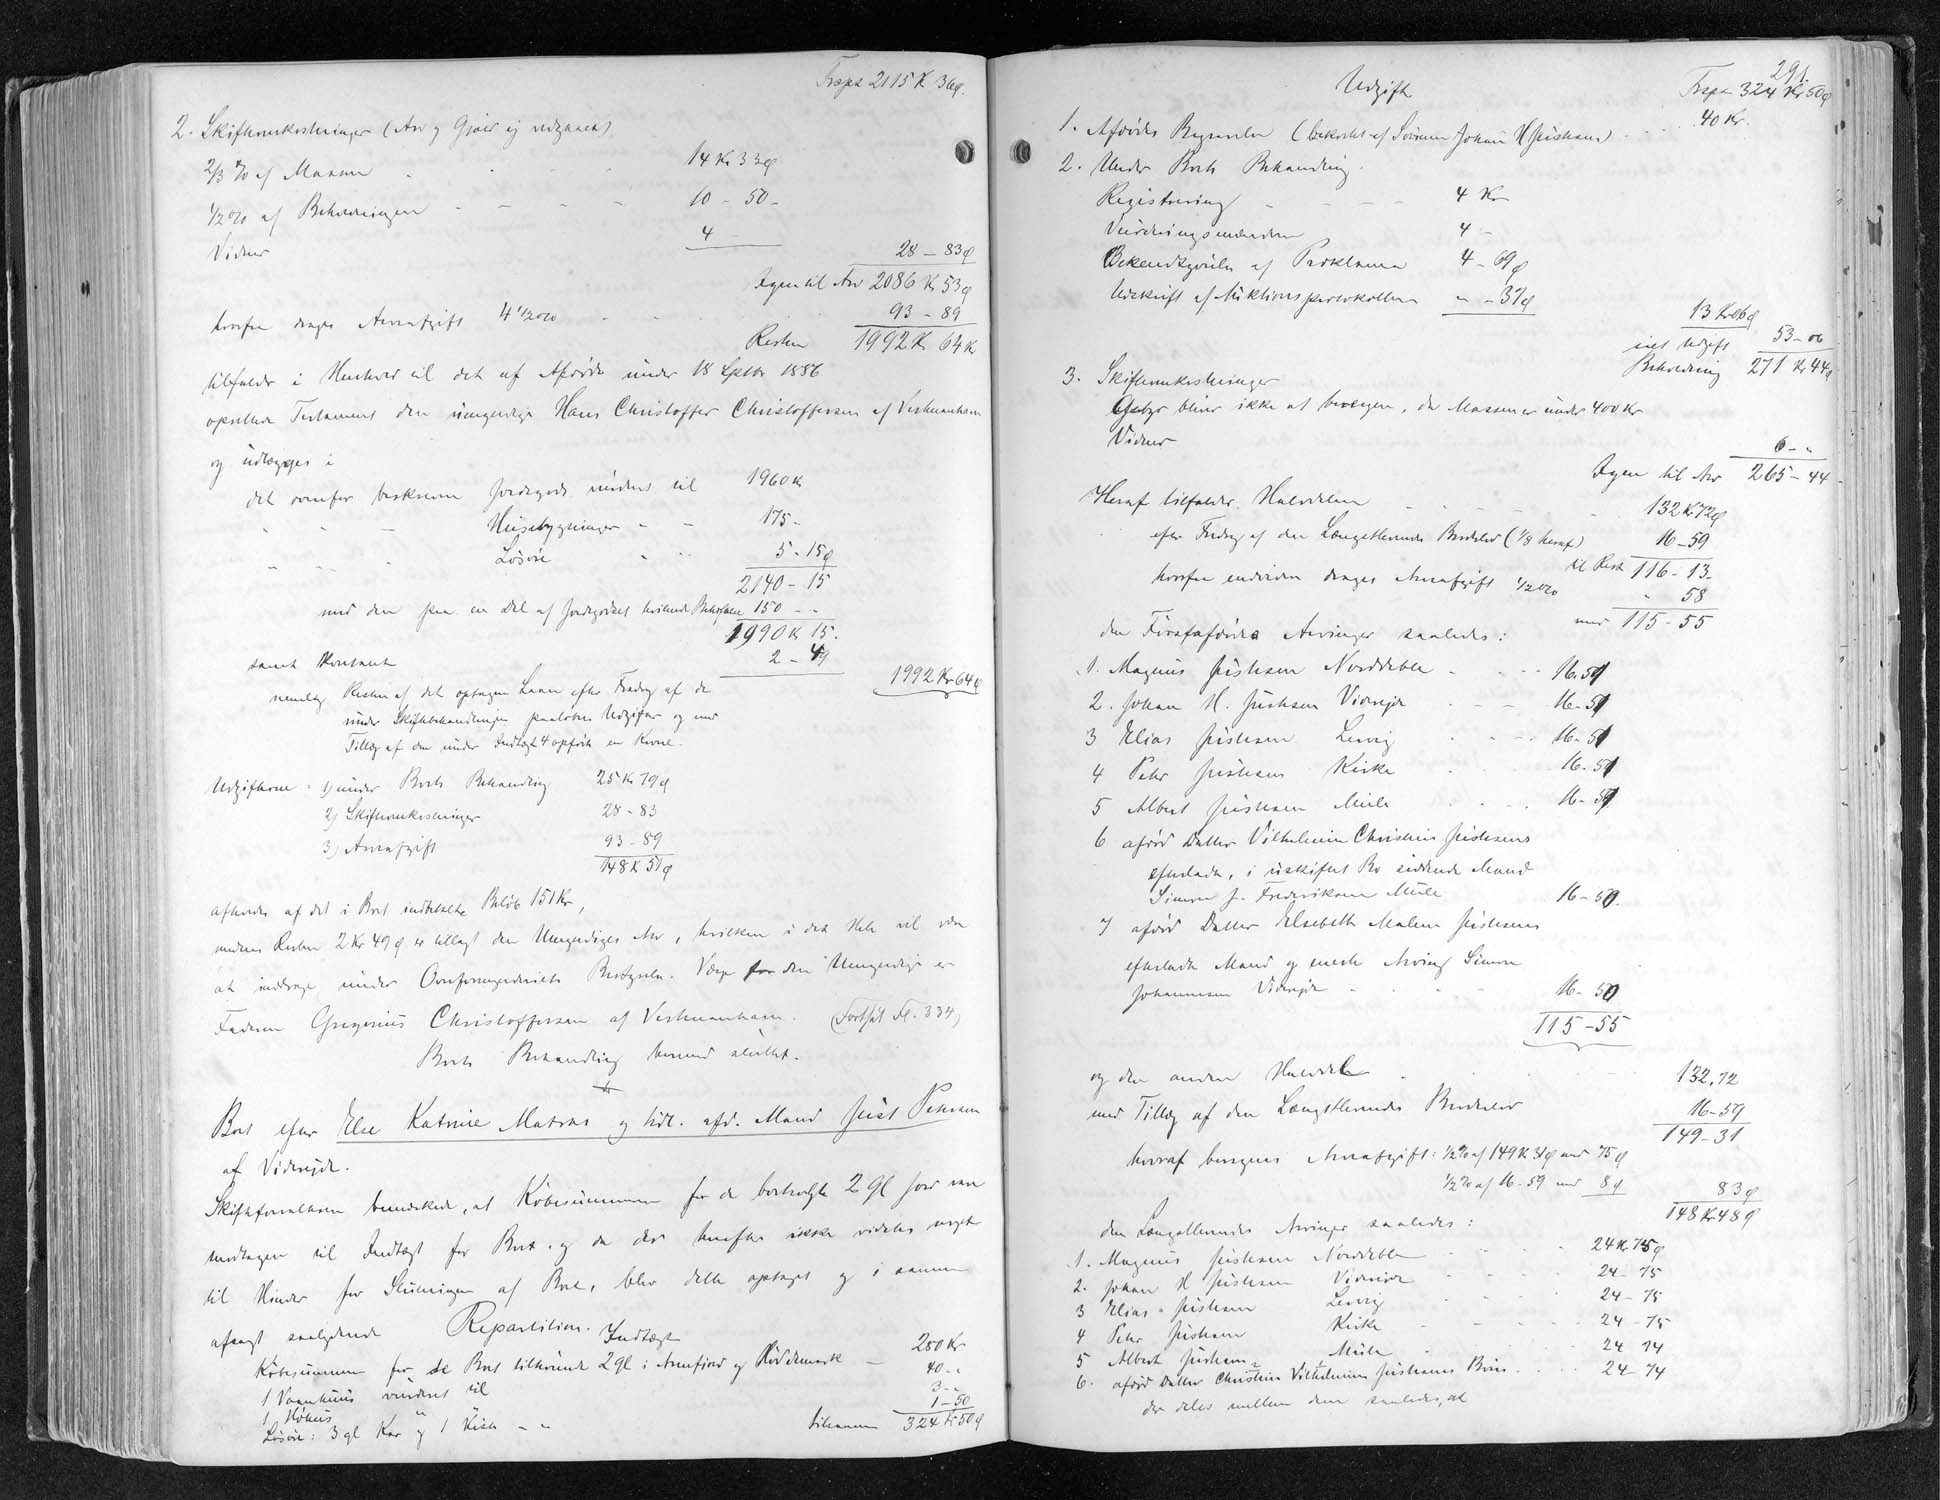 Trspt 2115 K 36 ø.
2. Skifteomkostninger (Arv og Gjæv ej
2/3 % af Massen 14 Kr 33 ø
1/2 % af Beholdningen 10 - 50 -
Vidner 4 -
28 - 83 ø
Igen til Arv 2086 Kr 53 ø
hvorfra drages Arveafgift 4 1/2 % 93 - 89
Resten 1992 Kr 64 K
tilfalder i Henhold til det af Afdøde under 18 Septbr 1886
oprettede Testament den umyndige Hans Christoffer Christoffersen af Vestmanhavn
og udlægges i
det ovenfor beskrevne Jordegods vurderet til 1960 K
Husebygninger 175 -
Løsøre 5 - 15 ø
2140 - 15
med den paa en Del af Jordegodset hvilende 150 - -
1990 K 15.
samt Kontant 2 - 49
1992 Kr 64 ø
nemlig Resten af det optagne Laan efter Fradrag af de
under Skiftebehandlingen paaløbne Udgifter og med
Tillæg af den under Indtægt 4 opførte en Krone.
Udgifterne: 1) under Boets Behandling 25 Kr 79 ø
2) Skifteomkostninger 28 - 83
3) Arveafgift 93 - 89
148 K 51 ø
afholdes af det i Boet indbetalte Beløb 151 Kr,
medens Resten 2 Kr 49 ø er tillagt den Umyndiges Arv, hvilken i det Hele vil være
at inddrage under Overformynderiets Bestyrelse. Værge for den Umyndige er
Faderen Gregorius Christoffersen af Vestmanhavn. (Fortsat Fl. 334)
Boets Behandling hermed sluttet.
Boet efter Else Katrine Matras og tidl. afd. Mand Just Petersen
af Viderejde.
Skifteforvalteren bemærkede, at Købesummen for de bortsolgte 2 gl Jord var
modtagen til Indtægt for Boet, og da der herefter ikke vidstes noget
til Hinder for Slutningen af Boet, blev dette optaget og i samme
afsagt saalydende Repartition. Indtægt
Købesummen for de Boet tilhørende 2 gl i Arnefjord og 280 Kr
1 Vaanhuus vurderet til 40 - -
1 Høhus " " 3 - -
Løsøre: 3 gl Kar og 1 Kiste - " 1 - 50
tilsammen 324 Kr 50 ø
291.
Udgift Trspt 324 Kr 50 ø
1. Afdødes Begravelse (bekostet af Sønnen Johan H. Justesen) 40 Kr.
2. Under Boets Behandling.
Registrering 4 Kr
Vurderingsmændene 4 -
Bekendtgørelse af Proklama 4 - 69 ø
Udskrift af Auktionsprotokollen " - 37 ø
13 Kr 06 ø
ialt Udgift 53 - 06
Beholdning 271 Kr 44 ø
3. Skifteomkostninger
Gebyr bliver ikke at beregne, da Massen er under 400 Kr
Vidner 6 - "
Igen til Arv 265 - 44
Heraf tilfalder Halvdelen 132 Kr 72 ø
efter Fradrag af den Længstlevendes Broderlod (1/8 heraf) 16 - 59
til Rest 116 - 13 -
hvorfra endvidere drages Arveafgift 1/2 % " 58
med 115 - 55
den Førstafdødes Arvinger saaledes:
1. Magnus Justesen Norddeble 16. 51
2. Johan H. Justesen Viderejde 16 - 51
3 Elias Justesen Leivig 16 - 51
4 Peter Justesen Kirke 16 - 51
5 Albert Justesen Mule 16 - 51
6 afdød Datter Vilhelmine Christine Justesens
efterladte, i uskiftet Bo siddende Mand
Simon J. Frederiksen Mule 16 - 50.
7 afdød Datter Elsebeth Malene Justesens
efterladte Mand og eneste Arving Simon
Johannesen Viderejde 16 - 50
115 - 55
og den anden Halvdel 132. 72
med Tillæg af den Længstlevendes Broderlod 16 - 59
149 - 31
hvoraf beregnes Arveafgift: 1/2 % af 149 K 31 ø med 75 ø
1/2 % af 16 - 59 med 8 ø 83 ø
148 Kr 48 ø
den Længstlevendes Arvinger saaledes:
1. Magnus Justesen Norddeble 24 K. 75 ø
2. Johan H Justesen Viderejde 24 - 75
3 Elias Justesen Leivig 24 - 75
4 Peter Justesen Kirke 24 - 75
5 Albert Justesen Mule 24 74
6. afdød Datter Christine Vilhelmine Justesens Børn 24 - 74
der deles mellem dem saaledes, at